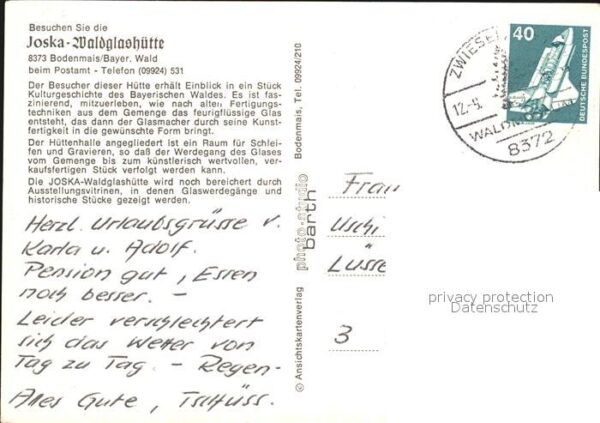 Besuchen Sie die
Joska-Waldglashütte
8373 Bodenmais/Bayer. Wald
beim Postamt - Telefon (09924) 531
Der Besucher dieser Hütte erhält Einblick in ein Stück
Kulturgeschichte des Bayerischen Waldes. Es ist fas-
zinierend, mitzuerleben, wie nach alten Fertigungs-
techniken aus dem Gemenge das feurigflüssige Glas
entsteht, das dann der Glasmacher durch seine Kunst-
fertigkeit in die gewünschte Form bringt.
Der Hüttenhalle angegliedert ist ein Raum für Schlei-
fen und Gravieren, so daß der Werdegang des Glases
vom Gemenge bis zum künstlerisch wertvollen, ver-
kaufsfertigen Stück verfolgt werden kann.
Die JOSKA-Waldglashütte wird noch bereichert durch
Ausstellungsvitrinen, in denen Glaswerdegänge und
historische Stücke gezeigt werden.
Herzl. Urlaubsgrüsse v.
Karla u. Adolf.
Pension gut, Essen
noch besser. -
Leider verschlechtert
sich das Wetter von
Tag zu Tag. - Regen-
Alles Gute, Tschüss.
© Ansichtskartenverlag photo-studio barth Bodenmais, Tel. 09924/210
ZWIESEL
12.-9.
8372
40
DEUTSCHE BUNDESPOST
Frau
Uschi
Lüsse
3
privacy protection
Datenschutz